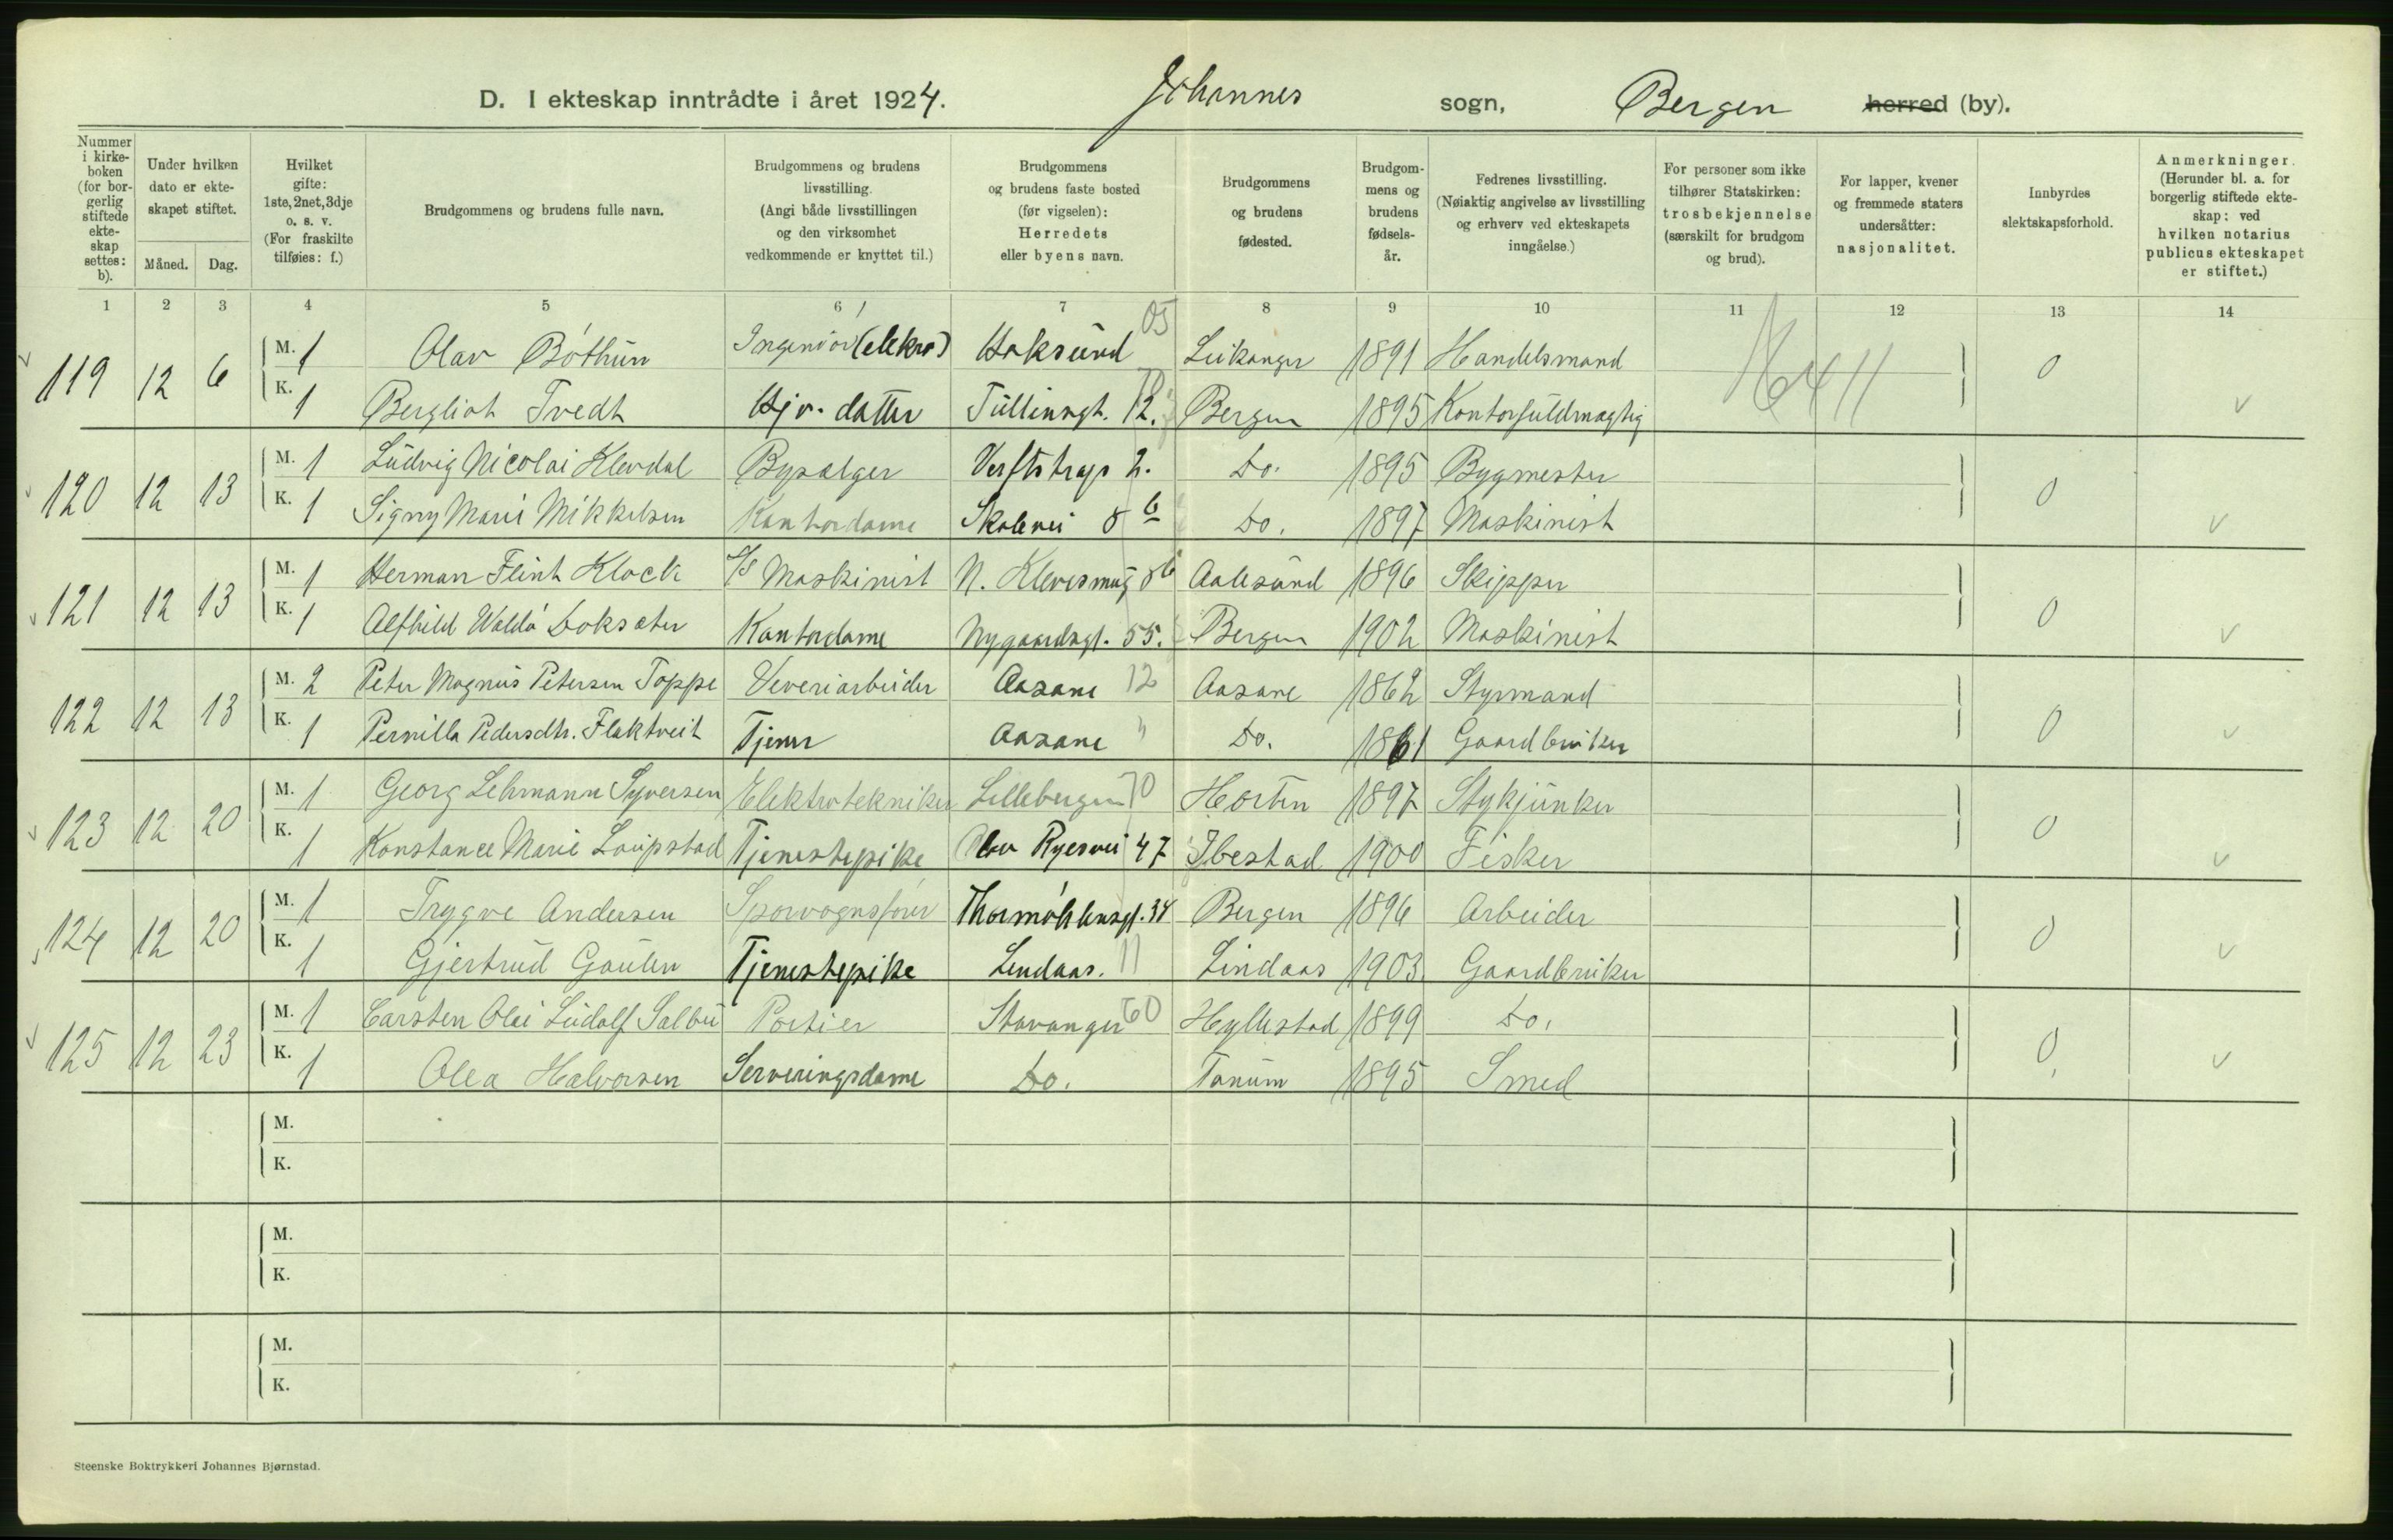 D. I ekteskap inntrådte i året 1924. Johannes sogn, Bergen herred (by).
Nummer i kirkeboken (for borgerlig stiftede ekteskap settes: b).
Under hvilken dato er ekteskapet stiftet.
Måned. Dag.
Hvilket gifte: 1ste, 2net, 3dje o. s. v. (For fraskilte tilføies: f.)
Brudgommens og brudens fulle navn.
Brudgommens og brudens livsstilling. (Angi både livsstillingen og den virksomhet vedkommende er knyttet til.)
Brudgommens og brudens faste bosted (før vigselen): Herredets eller byens navn.
Brudgommens og brudens fødested.
Brudgommens og brudens fødselsår.
Fedrenes livsstilling. (Nøiaktig angivelse av livsstilling og erhverv ved ekteskapets inngåelse.)
For personer som ikke tilhører Statskirken: trosbekjennelse (særskilt for brudgom og brud).
For lapper, kvener og fremmede staters undersåtter: nasjonalitet.
Innbyrdes slektskapsforhold.
Anmerkninger. (Herunder bl. a. for borgerlig stiftede ekteskap: ved hvilken notarius publicus ekteskapet er stiftet.)
1 2 3 4 5 6 7 8 9 10 11 12 13 14
119 12 6 M. 1 Olav Bóthun Ingeniór (elekro) Haksund 05 Leikanger 1891 Handelsmand 0
K. 1 Bergliot Tvedt Hjv. datter Tullinsgt. 12. Bergen 1895 Kontorfuldmægtig
120 12 13 M. 1 Ludvig Nicolai Klevdal Bypælger Verftstræp 2. Do. 1895 Bygmester 0
K. 1 Signy Marie Mikkelsen Kontordame Skolevei 8 b Do. 1897 Maskinist
121 12 13 M. 1 Herman Flint Klock S/S Maskinist N. Kleivesmug 8b Aalesund 1896 Skipper 0
K. 1 Alfhild Walda Doksæter Kontordame Nygaardsgt. 55. Bergen 1902 Maskinist
122 12 13 M. 2 Peter Magnus Petersen Toppe Veveriarbeider Aasane 12 Aasane 1862 Styrmand 0
K. 1 Pernilla Pedersdtr. Flaktveit Tjener Aasane " Do. 1861 Gaardbruker
123 12 20 M. 1 Georg Lehmann Syversen Elektrotekniker Lillebergen 70 Horten 1897 Stykjunker 0
K. 1 Konstance Marie Loupstad Tjenestepike Olav Ryesvei 47 Ibestad 1900 Fisker
124 12 20 M. 1 Trygve Andersen Sporvognsfører Thormóhlensgt. 34 Bergen 1896 Arbeider 0
K. 1 Gjertrud Gaulen Tjenestepike Lindaas. 11 Lindaas 1903 Gaardbruker
125 12 23 M. 1 Carsten Olai Ludolf Salbu Portier Stavanger 60 Hyllestad 1899 Do. 0
K. 1 Olea Halvorsen Serveringsdame Do. Tanum 1895 Smed
M.
K.
M.
K.
M.
K.
Steenske Boktrykkeri Johannes Bjørnstad.